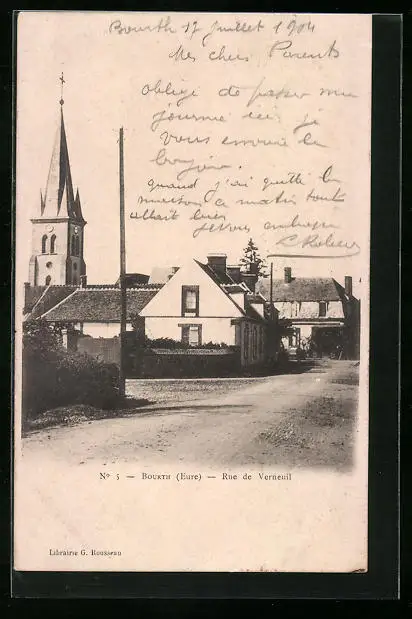 Bourth 17 Juillet 1904
Mes chers Parents
obligé de passer ma
journée ici je
vous envoie le
bonjour.
quand j'ai quitté la
maison ce matin tout
allait bien
N° 5 — Bourth (Eure) — Rue de Verneuil
Librairie G. Rousseau